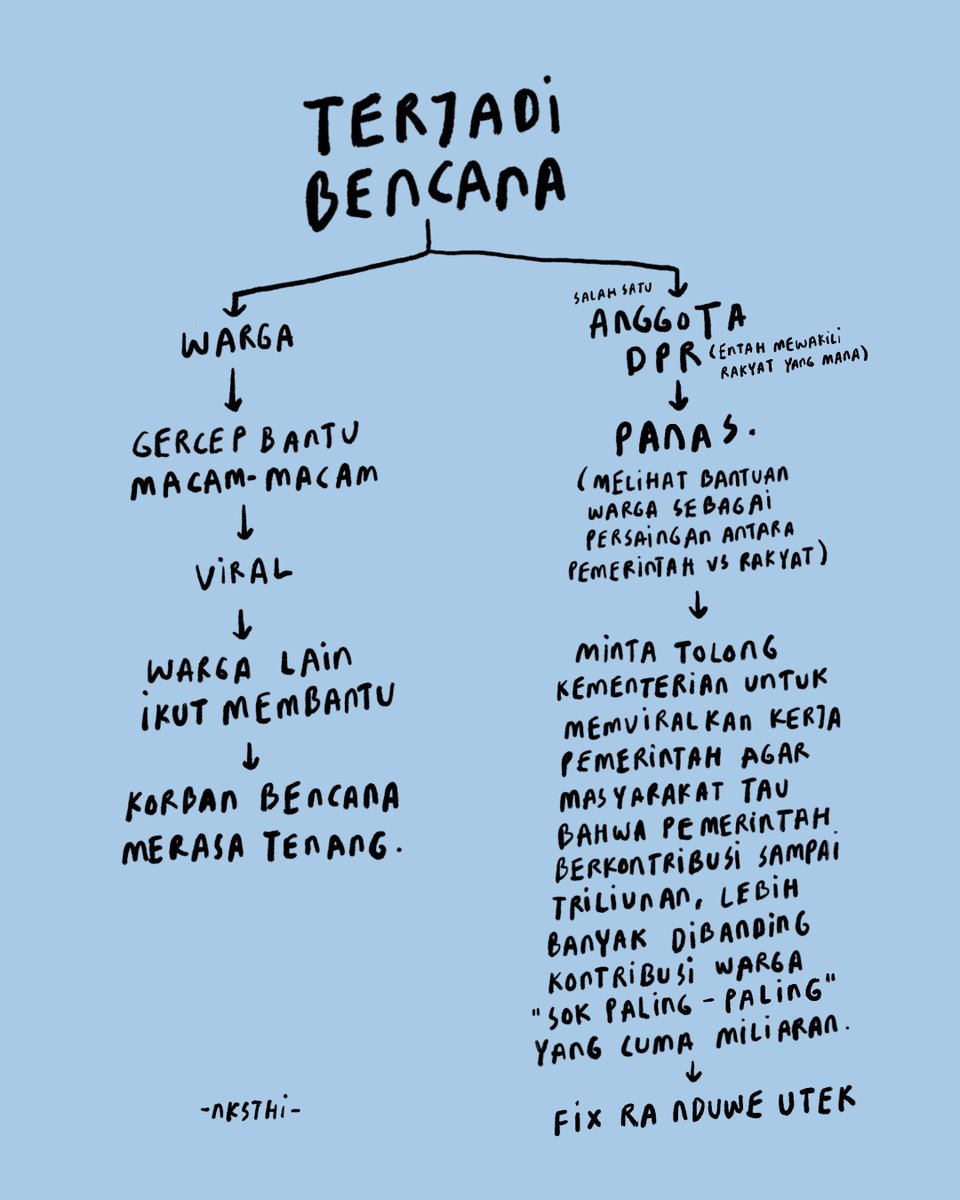 TERJADI
BENCANA
WARGA
GERCEP BANTU
MACAM-MACAM
VIRAL
WARGA LAIN
IKUT MEMBANTU
KORBAN BENCANA
MERASA TENANG.
SALAH SATU
ANGGOTA
DPR (ENTAH MEWAKILI
RAKYAT YANG MANA)
PANAS.
(MELIHAT BANTUAN
WARGA SEBAGAI
PERSAINGAN ANTARA
PEMERINTAH VS RAKYAT)
MINTA TOLONG
KEMENTERIAN UNTUK
MEMVIRALKAN KERJA
PEMERINTAH AGAR
MASYARAKAT TAU
BAHWA PEMERINTAH
BERKONTRIBUSI SAMPAI
TRILIUNAN, LEBIH
BANYAK DIBANDING
KONTRIBUSI WARGA
"SOK PALING-PALING"
YANG CUMA MILIARAN.
FIX RA NDUWE UTEK
-NKSTHI-